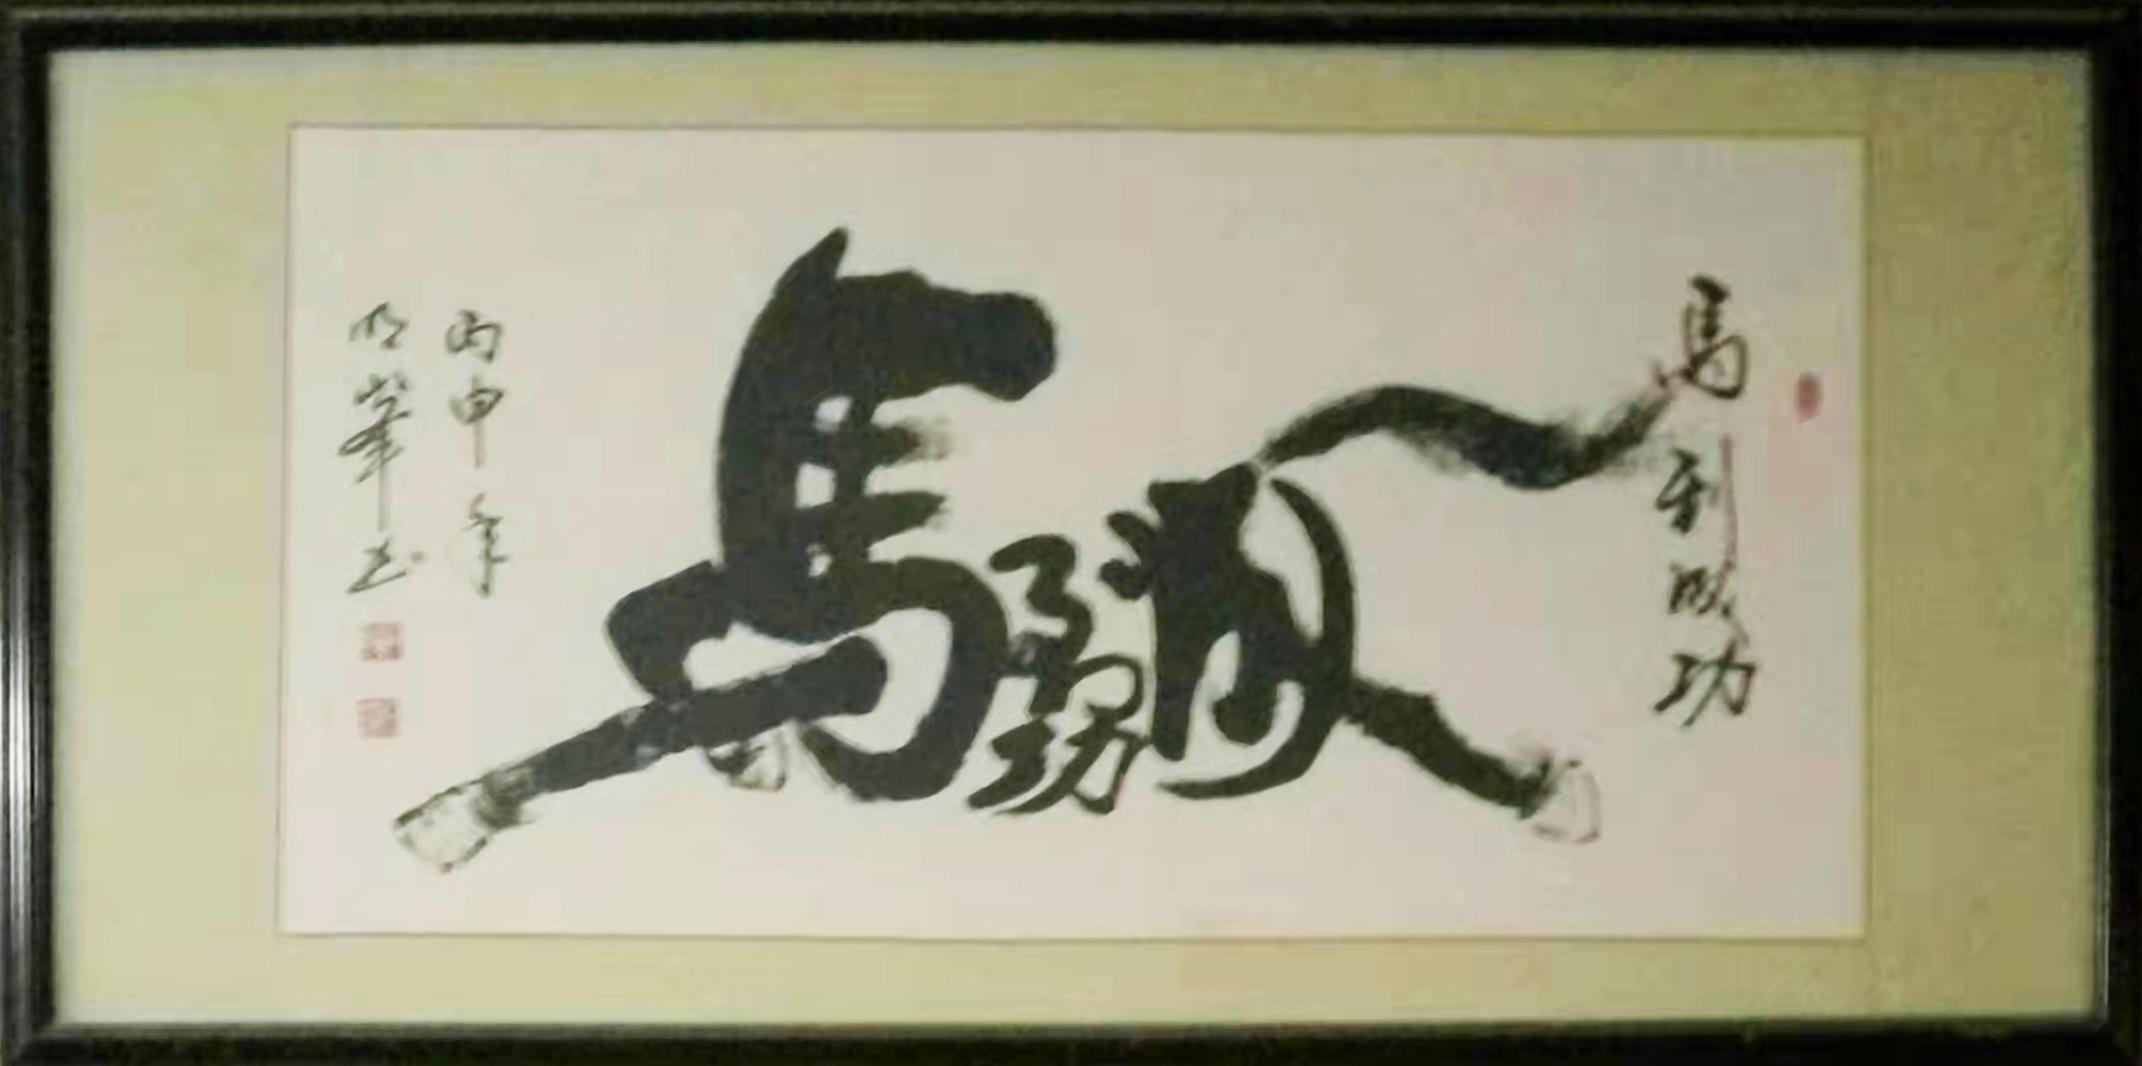 馬到成功
馬到成功
丙申年
明峯书